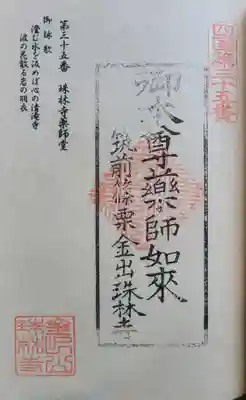 四国第三十五番
御本尊藥師如來
筑前篠栗金出珠林寺
第三十五番 珠林寺薬師堂
御詠歌
澄む水を汲めば心の清滝寺
波の花散る岩の羽衣
珠林寺